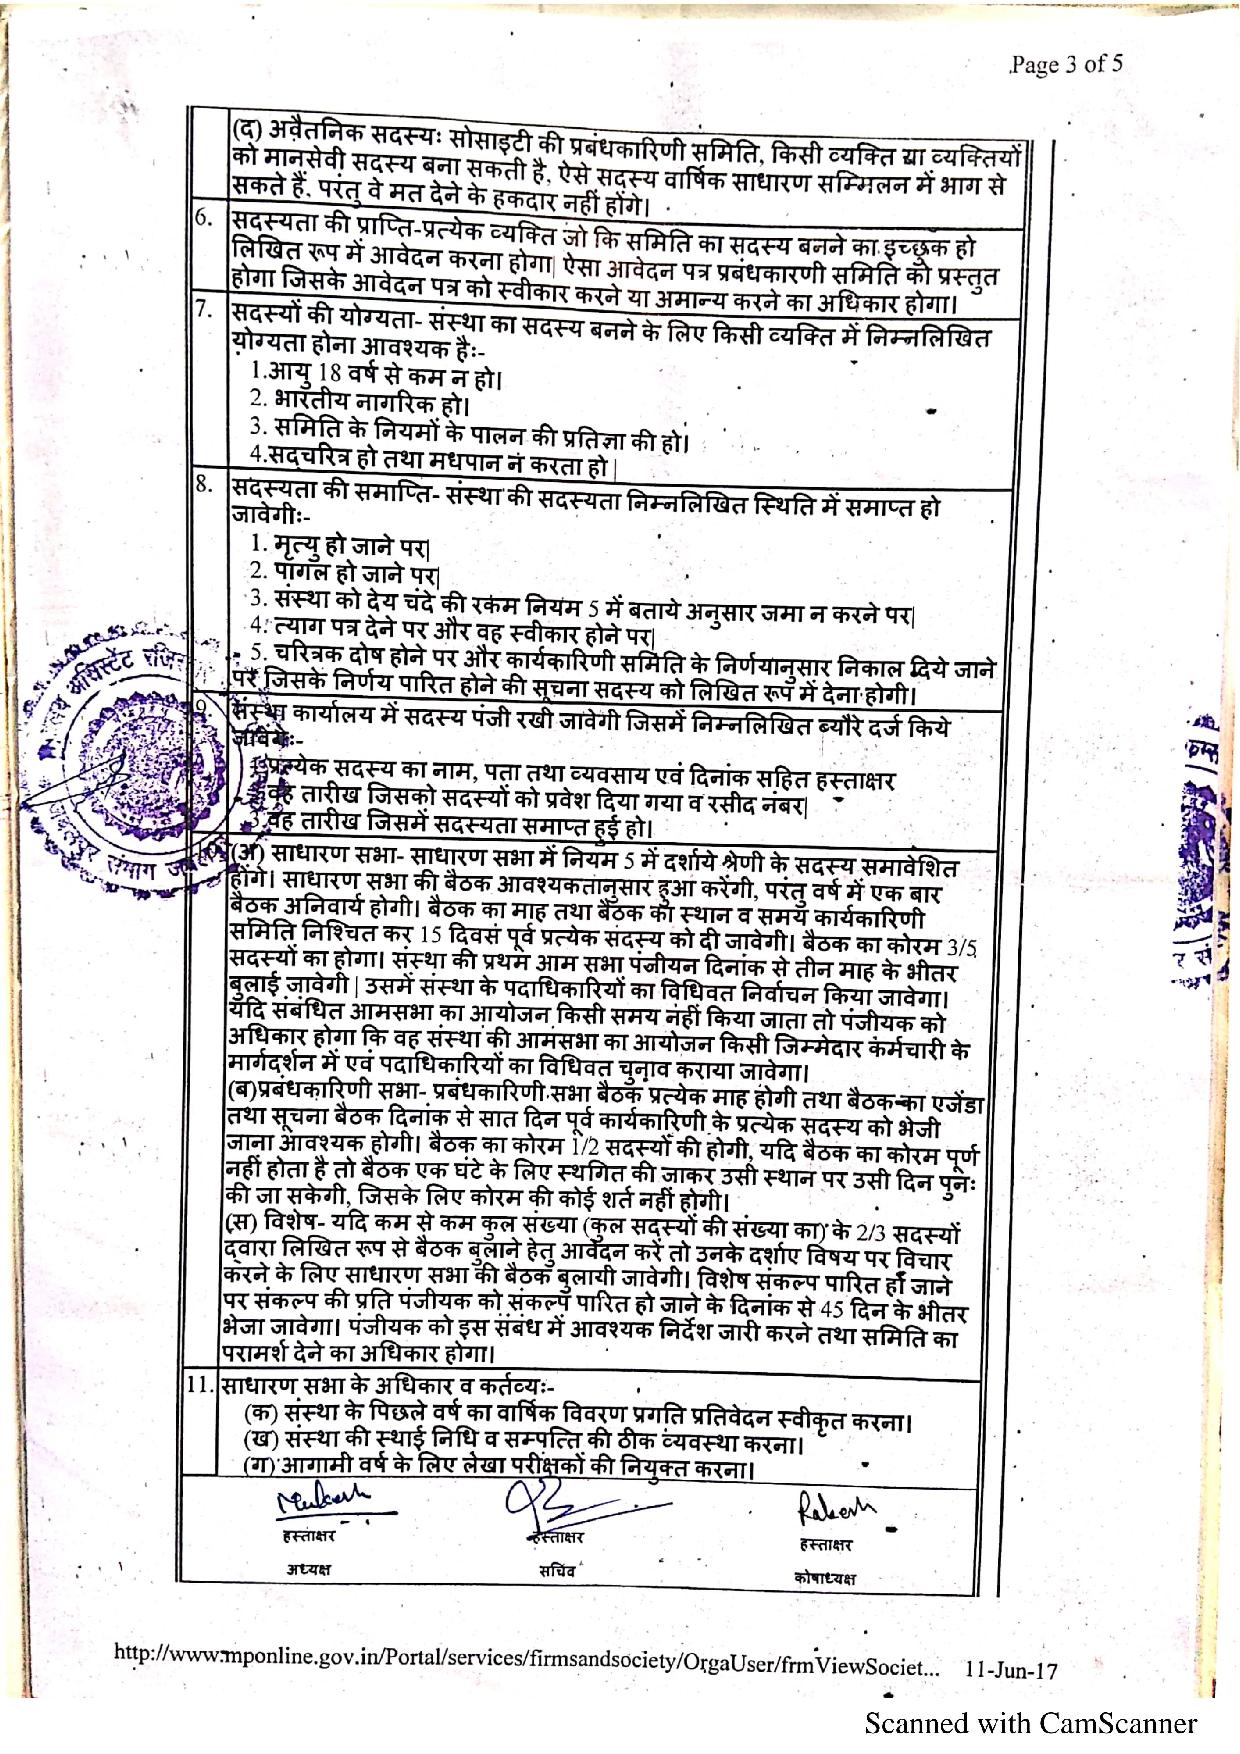 Page 3 of 5
(द) अवैतनिक सदस्यः सोसाइटी की प्रबंधकारिणी समिति, किसी व्यक्ति या व्यक्तियों
को मानसेवी सदस्य बना सकती है, ऐसे सदस्य वार्षिक साधारण सम्मिलन में भाग से
सकते हैं, परंतु वे मत देने के हकदार नहीं होंगे।
6. सदस्यता की प्राप्ति-प्रत्येक व्यक्ति जो कि समिति का सदस्य बनने का इच्छूक हो
लिखित रूप में आवेदन करना होगा| ऐसा आवेदन पत्र प्रबंधकारणी समिति को प्रस्तुत
होगा जिसके आवेदन पत्र को स्वीकार करने या अमान्य करने का अधिकार होगा।
7. सदस्यों की योग्यता- संस्था का सदस्य बनने के लिए किसी व्यक्ति में निम्नलिखित
योग्यता होना आवश्यक हैः-
1.आयु 18 वर्ष से कम न हो।
2. भारतीय नागरिक हो।
3. समिति के नियमों के पालन की प्रतिज्ञा की हो।
4.सद्चरित्र हो तथा मधपान न करता हो |
8. सदस्यता की समाप्ति- संस्था की सदस्यता निम्नलिखित स्थिति में समाप्त हो
जावेगीः-
1. मृत्यु हो जाने पर|
2. पागल हो जाने पर|
3. संस्था को देय चंदे की रकम नियम 5 में बताये अनुसार जमा न करने पर|
4. त्याग पत्र देने पर और वह स्वीकार होने पर|
5. चरित्रक दोष होने पर और कार्यकारिणी समिति के निर्णयानुसार निकाल दिये जाने
पर जिसके निर्णय पारित होने की सूचना सदस्य को लिखित रूप में देना होगी।
9. संस्था कार्यालय में सदस्य पंजी रखी जावेगी जिसमें निम्नलिखित ब्यौरे दर्ज किये
जावेंगेः-
1.प्रत्येक सदस्य का नाम, पता तथा व्यवसाय एवं दिनांक सहित हस्ताक्षर
वह तारीख जिसको सदस्यों को प्रवेश दिया गया व रसीद नंबर|
3.वह तारीख जिसमें सदस्यता समाप्त हुई हो।
(अ) साधारण सभा- साधारण सभा में नियम 5 में दर्शाये श्रेणी के सदस्य समावेशित
होंगे। साधारण सभा की बैठक आवश्यकतानुसार हुआ करेंगी, परंतु वर्ष में एक बार
बैठक अनिवार्य होगी। बैठक का माह तथा बैठक का स्थान व समय कार्यकारिणी
समिति निश्चित कर 15 दिवस पूर्व प्रत्येक सदस्य को दी जावेगी। बैठक का कोरम 3/5
सदस्यों का होगा। संस्था की प्रथम आम सभा पंजीयन दिनांक से तीन माह के भीतर
बुलाई जावेगी | उसमें संस्था के पदाधिकारियों का विधिवत निर्वाचन किया जावेगा।
यदि संबंधित आमसभा का आयोजन किसी समय नहीं किया जाता तो पंजीयक को
अधिकार होगा कि वह संस्था की आमसभा का आयोजन किसी जिम्मेदार कर्मचारी के
मार्गदर्शन में एवं पदाधिकारियों का विधिवत चुनाव कराया जावेगा।
(ब)प्रबंधकारिणी सभा- प्रबंधकारिणी सभा बैठक प्रत्येक माह होगी तथा बैठक का एजेंडा
तथा सूचना बैठक दिनांक से सात दिन पूर्व कार्यकारिणी के प्रत्येक सदस्य को भेजी
जाना आवश्यक होगी। बैठक का कोरम 1/2 सदस्यों की होगी, यदि बैठक का कोरम पूर्ण
नहीं होता है तो बैठक एक घंटे के लिए स्थगित की जाकर उसी स्थान पर उसी दिन पुनः
की जा सकेगी, जिसके लिए कोरम की कोई शर्त नहीं होगी।
(स) विशेष- यदि कम से कम कुल संख्या (कुल सदस्यों की संख्या का) के 2/3 सदस्यों
द्वारा लिखित रूप से बैठक बुलाने हेतु आवेदन करें तो उनके दर्शाए विषय पर विचार
करने के लिए साधारण सभा की बैठक बुलायी जावेगी। विशेष संकल्प पारित हो जाने
पर संकल्प की प्रति पंजीयक को संकल्प पारित हो जाने के दिनांक से 45 दिन के भीतर
भेजा जावेगा। पंजीयक को इस संबंध में आवश्यक निर्देश जारी करने तथा समिति का
परामर्श देने का अधिकार होगा।
11. साधारण सभा के अधिकार व कर्तव्यः-
(क) संस्था के पिछले वर्ष का वार्षिक विवरण प्रगति प्रतिवेदन स्वीकृत करना।
(ख) संस्था की स्थाई निधि व सम्पत्ति की ठीक व्यवस्था करना।
(ग) आगामी वर्ष के लिए लेखा परीक्षकों की नियुक्त करना।
Mukesh Rakesh
हस्ताक्षर हस्ताक्षर हस्ताक्षर
अध्यक्ष सचिव कोषाध्यक्ष
http://www.mponline.gov.in/Portal/services/firmsandsociety/OrgaUser/frmViewSociet... 11-Jun-17
Scanned with CamScanner